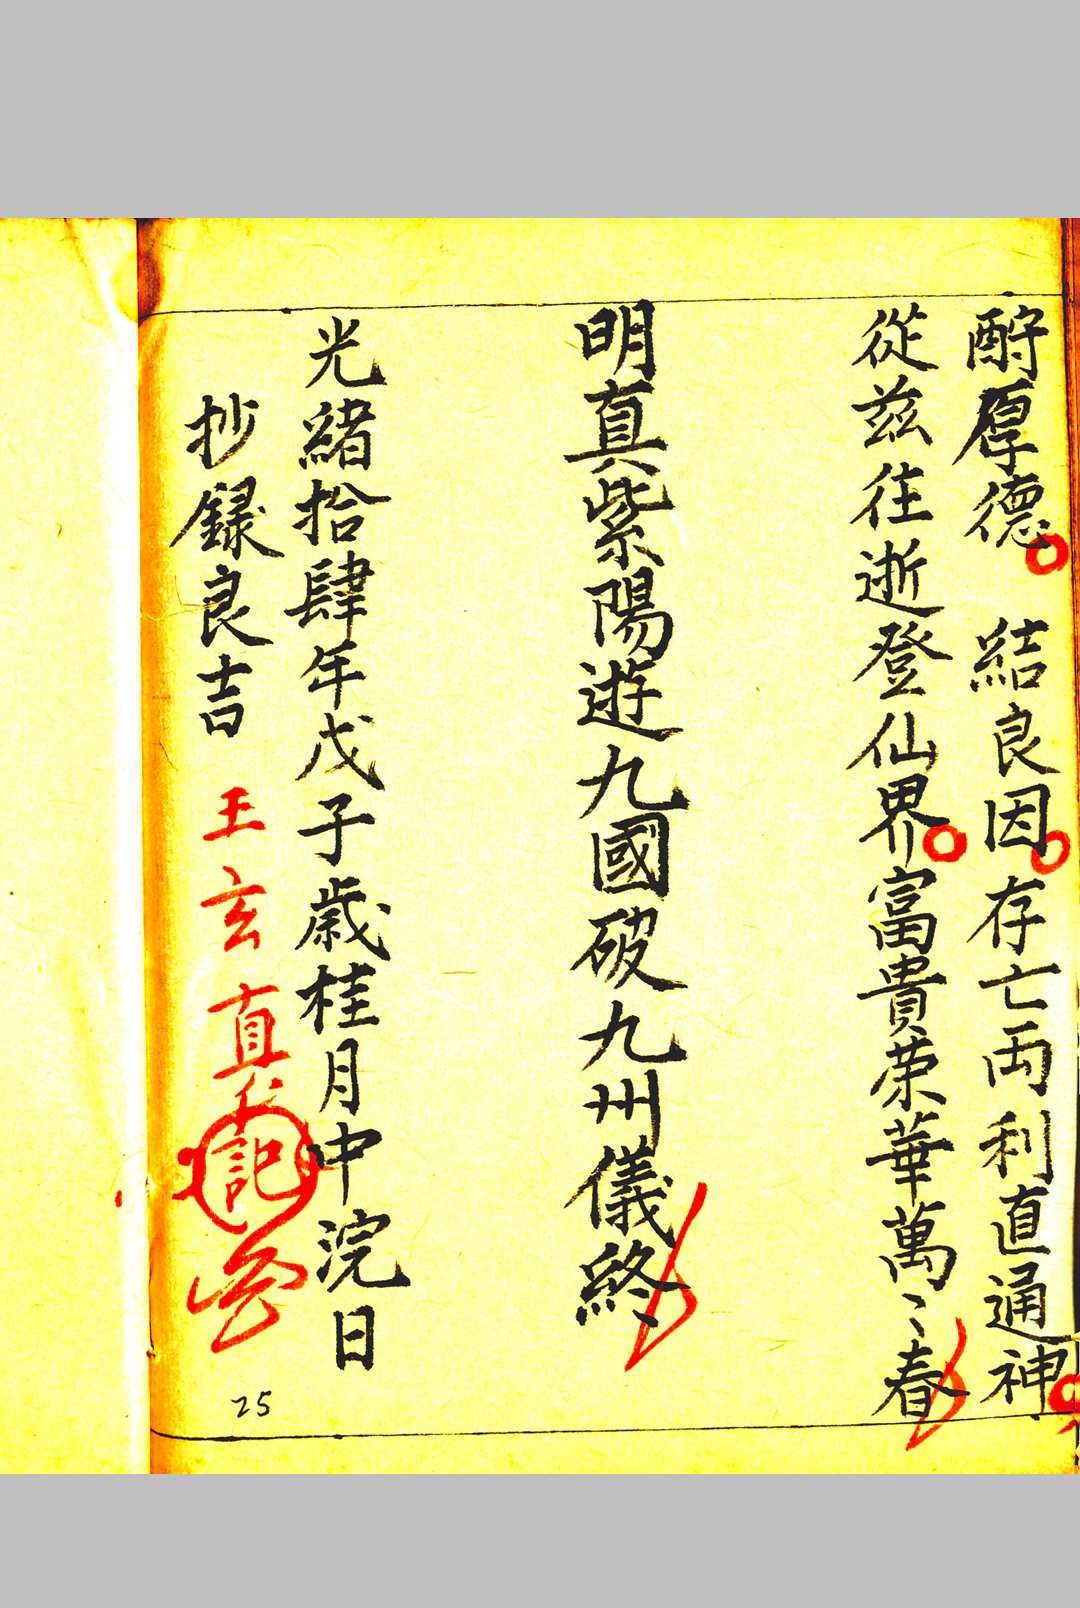 酧厚德 結良因 存亡両利直通神
從茲往逝登仙界 富貴荣華萬〻春
明真紫陽遊九國破九州儀終
光緒拾肆年戊子歲桂月中浣日
抄録良吉 王玄真 記
25